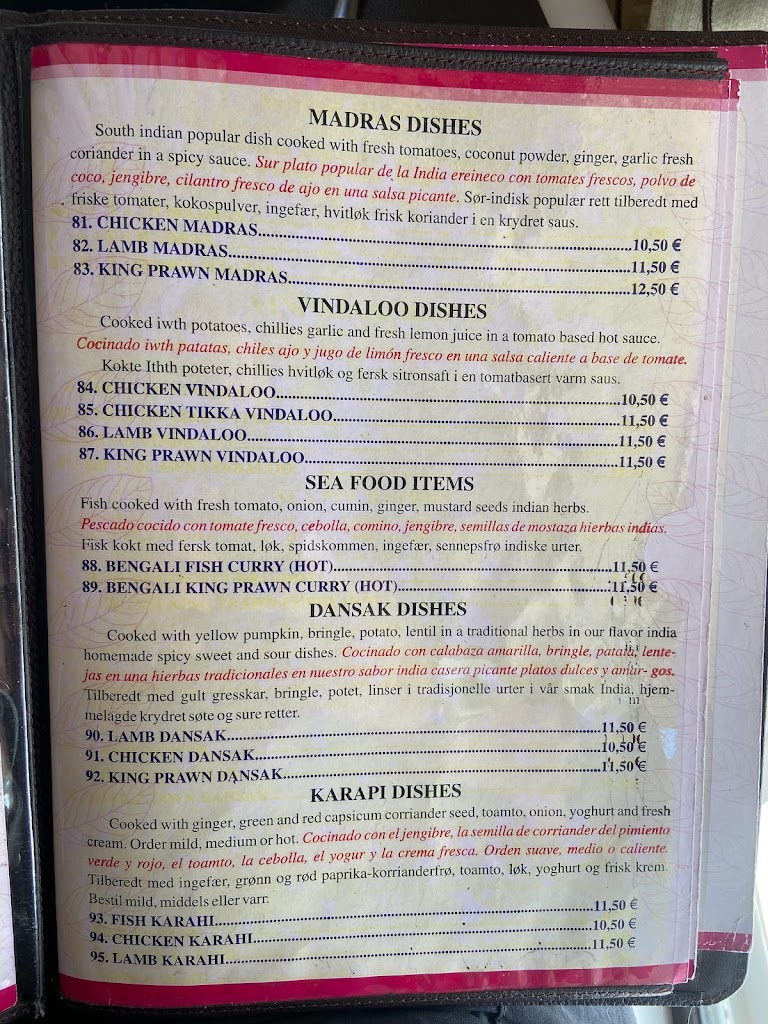 MADRAS DISHES
South indian popular dish cooked with fresh tomatoes, coconut powder, ginger, garlic fresh
coriander in a spicy sauce. Sur plato popular de la India ereineco con tomates frescos, polvo de
coco, jengibre, cilantro fresco de ajo en una salsa picante. Sør-indisk populær rett tilberedt med
friske tomater, kokospulver, ingefær, hvitløk frisk koriander i en krydret saus.
81. CHICKEN MADRAS..........10,50 €
82. LAMB MADRAS..........11,50 €
83. KING PRAWN MADRAS..........12,50 €
VINDALOO DISHES
Cooked iwth potatoes, chillies garlic and fresh lemon juice in a tomato based hot sauce.
Cocinado iwth patatas, chiles ajo y jugo de limón fresco en una salsa caliente a base de tomate.
Kokte Ithth poteter, chillies hvitløk og fersk sitronsaft i en tomatbasert varm saus.
84. CHICKEN VINDALOO..........10,50 €
85. CHICKEN TIKKA VINDALOO..........11,50 €
86. LAMB VINDALOO..........11,50 €
87. KING PRAWN VINDALOO..........11,50 €
SEA FOOD ITEMS
Fish cooked with fresh tomato, onion, cumin, ginger, mustard seeds indian herbs.
Pescado cocido con tomate fresco, cebolla, comino, jengibre, semillas de mostaza hierbas indias.
Fisk kokt med fersk tomat, løk, spidskommen, ingefær, sennepsfrø indiske urter.
88. BENGALI FISH CURRY (HOT)..........11,50 €
89. BENGALI KING PRAWN CURRY (HOT)..........11,50 €
DANSAK DISHES
Cooked with yellow pumpkin, bringle, potato, lentil in a traditional herbs in our flavor india
homemade spicy sweet and sour dishes. Cocinado con calabaza amarilla, bringle, patata, lente-
jas en una hierbas tradicionales en nuestro sabor india casera picante platos dulces y amar- gos.
Tilberedt med gult gresskar, bringle, potet, linser i tradisjonelle urter i vår smak India, hjem-
melagde krydret søte og sure retter.
90. LAMB DANSAK..........11,50 €
91. CHICKEN DANSAK..........10,50 €
92. KING PRAWN DANSAK..........11,50 €
KARAPI DISHES
Cooked with ginger, green and red capsicum corriander seed, toamto, onion, yoghurt and fresh
cream. Order mild, medium or hot. Cocinado con el jengibre, la semilla de corriander del pimiento
verde y rojo, el toamto, la cebolla, el yogur y la crema fresca. Orden suave, medio o caliente.
Tilberedt med ingefær, grønn og rød paprika-korrianderfrø, toamto, løk, yoghurt og frisk krem.
Bestil mild, middels eller varr.
93. FISH KARAHI..........11,50 €
94. CHICKEN KARAHI..........10,50 €
95. LAMB KARAHI..........11,50 €